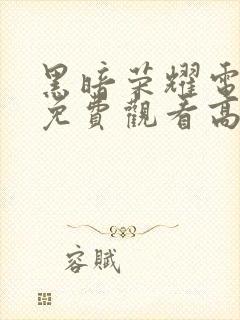 黑暗荣耀電
免費觀看高
容賦